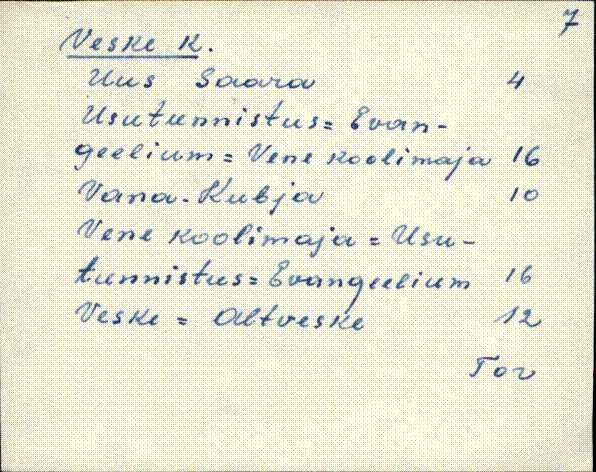 7
Veske K.
Uus Saara 4
Usutunnistus = Evan-
geelium = Vene koolimaja 16
Vana-Kubja 10
Vene koolimaja = Usu-
tunnistus = Evangeelium 16
Veske = Altveske 12
Tor